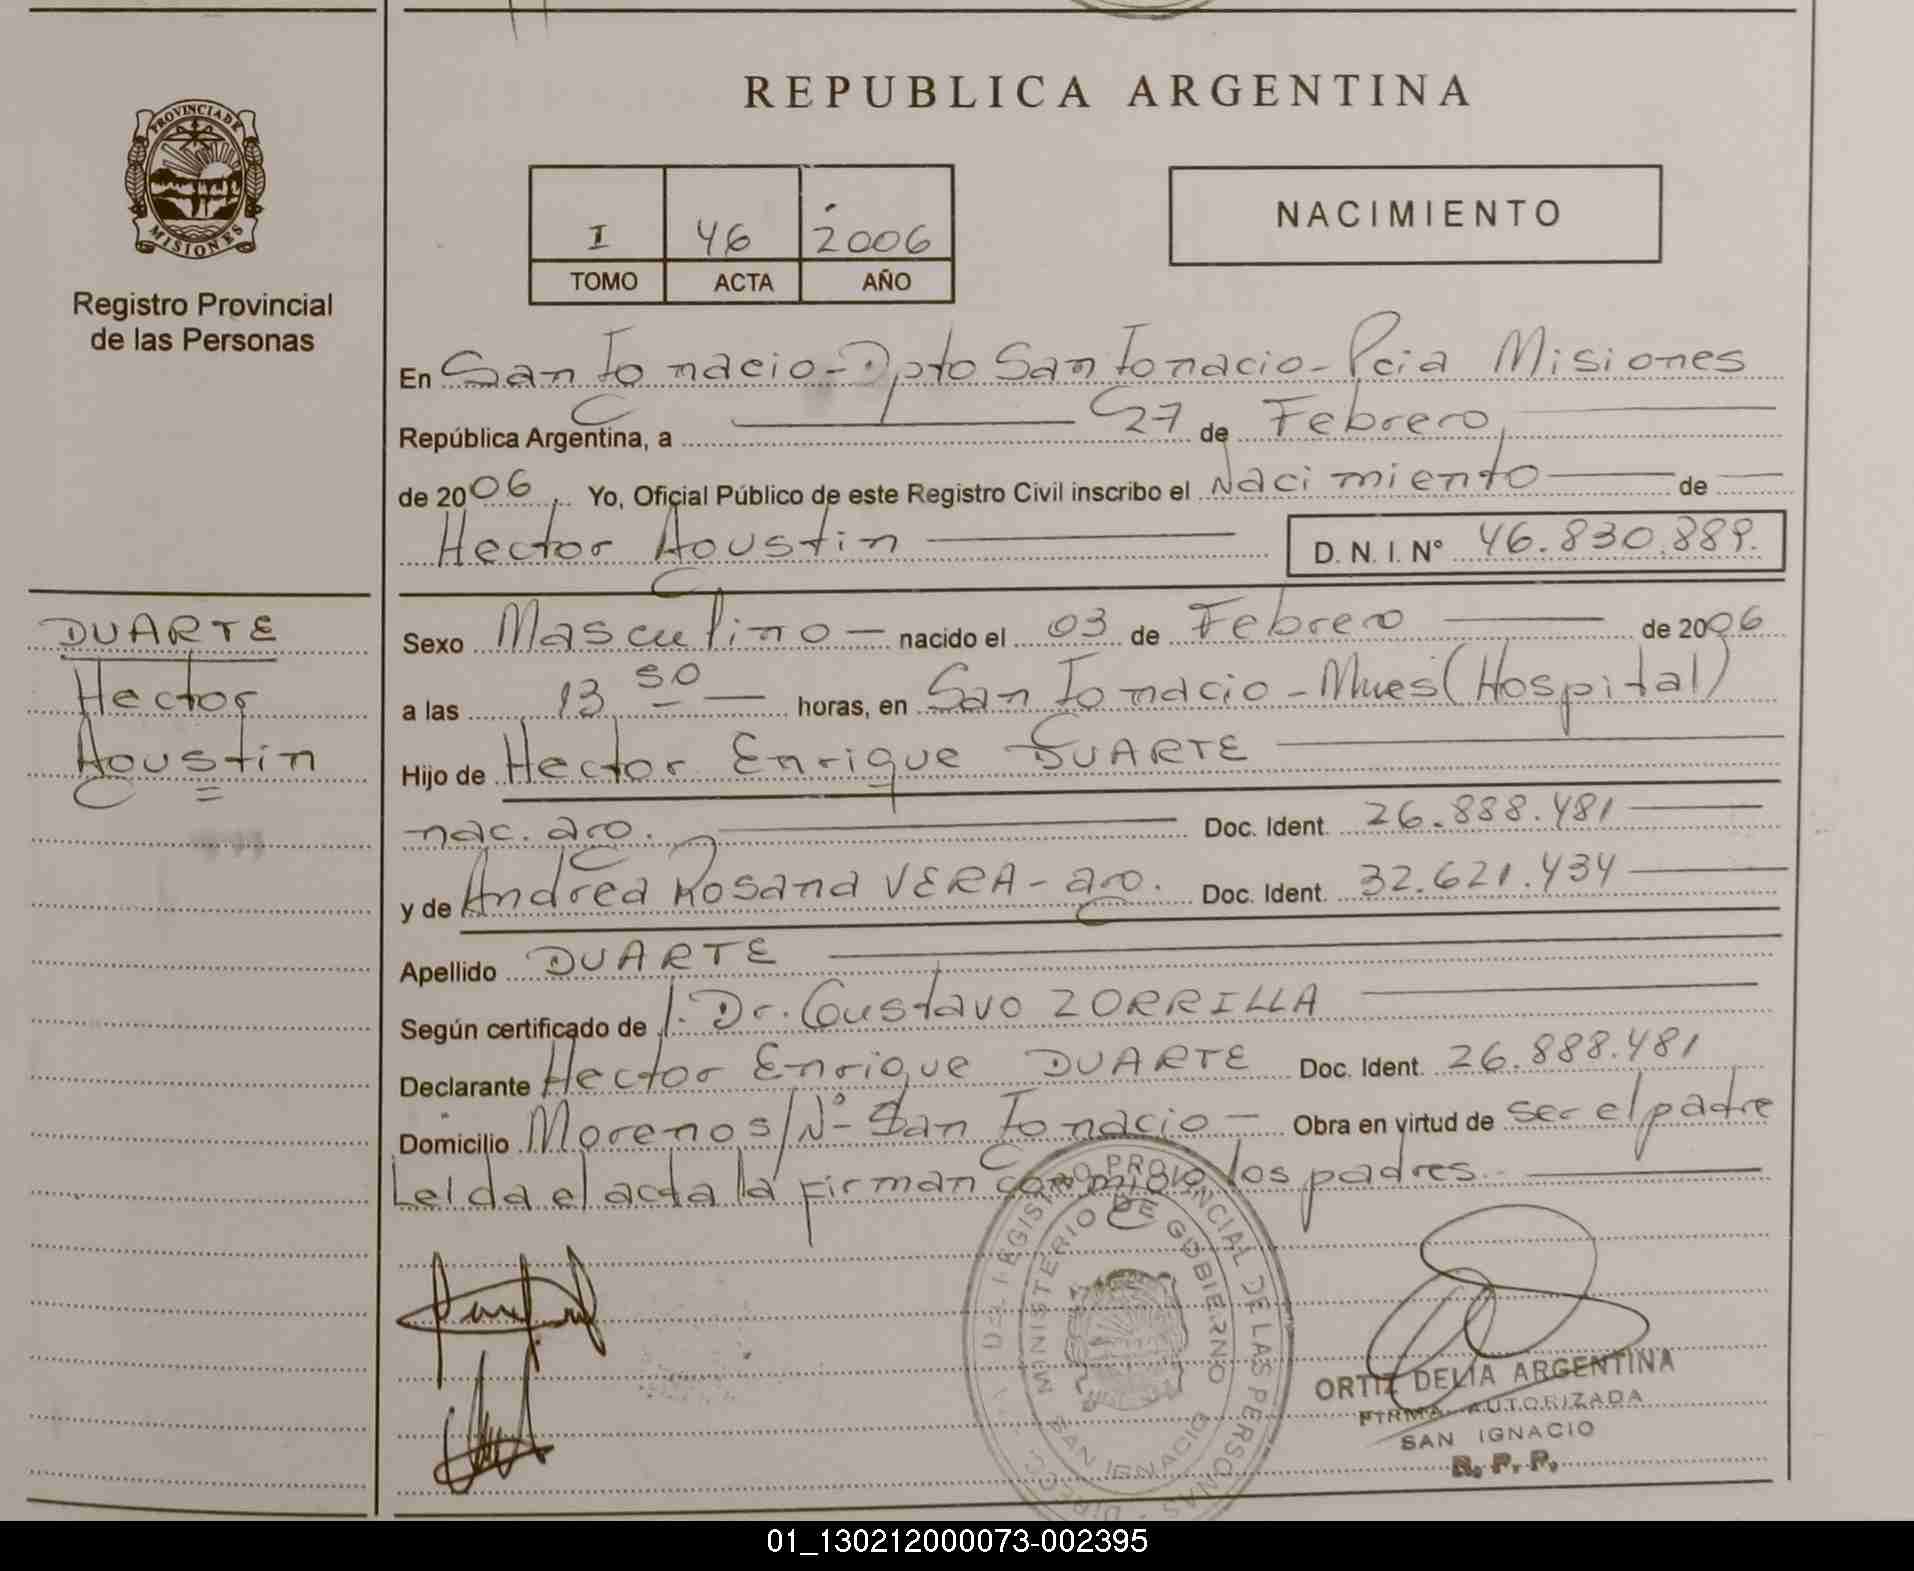 REPUBLICA ARGENTINA
PROVINCIA DE
MISIONES
Registro Provincial
de las Personas
I 46 2006
TOMO ACTA AÑO
NACIMIENTO
En San Ignacio - Dpto San Ignacio - Pcia Misiones
República Argentina, a 27 de Febrero
de 2006. Yo, Oficial Público de este Registro Civil inscribo el Nacimiento de
Hector Agustin D. N. I. N° 46.830.889.
DUARTE
Hector
Agustin
Sexo Masculino - nacido el 03 de Febrero de 2006
a las 13 50 horas, en San Ignacio - Mnes (Hospital)
Hijo de Hector Enrique DUARTE
nac. arg. Doc. Ident. 26.888.481
y de Andrea Rosana VERA - arg. Doc. Ident. 32.621.434
Apellido DUARTE
Según certificado de Dr. Gustavo ZORRILLA
Declarante Hector Enrique DUARTE Doc. Ident. 26.888.481
Domicilio Moreno s/N° San Ignacio - Obra en virtud de ser el padre
Leida el acta la firman conmigo los padres.
REGISTRO PROVINCIAL DE LAS PERSONAS
MINISTERIO DE GOBIERNO
SAN IGNACIO
ORTIZ DELIA ARGENTINA
FIRMA AUTORIZADA
SAN IGNACIO
R. P. P.
01_130212000073-002395